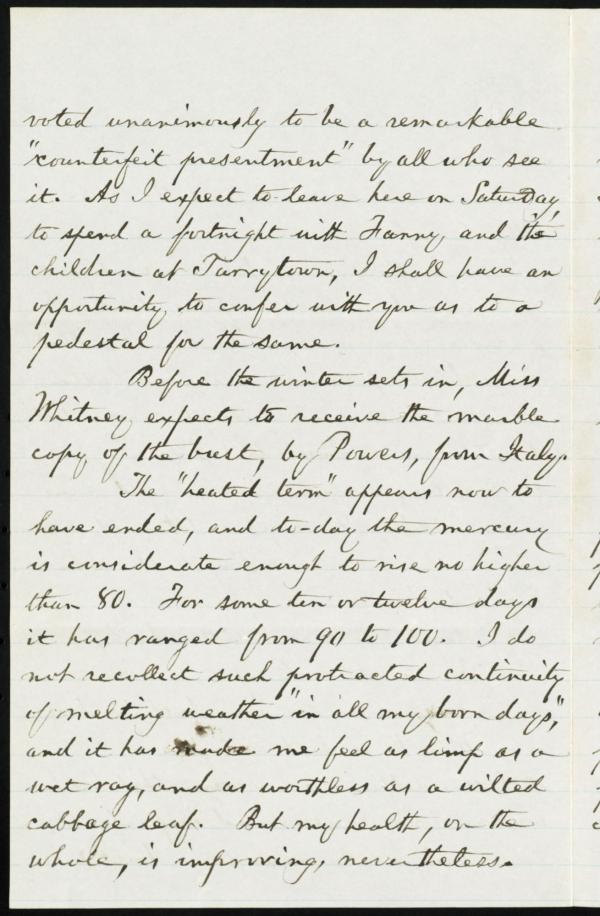 voted unanimously to be a remarkable
"counterfeit presentment" by all who see
it. As I expect to leave here on Saturday,
to spend a fortnight with Fanny and the
children at Tarrytown, I shall have an
opportunity to confer with you as to a
pedestal for the same.
Before the winter sets in, Miss
Whitney expects to receive the marble
copy of the bust, by Powers, from Italy.
The "heated term" appears now to
have ended, and to-day the mercury
is considerate enough to rise no higher
than 80. For some ten or twelve days
it has ranged from 90 to 100. I do
not recollect such protracted continuity
of melting weather "in all my born days,"
and it has made me feel as limp as a
wet rag, and as worthless as a wilted
cabbage leaf. But my health, on the
whole, is improving, nevertheless.